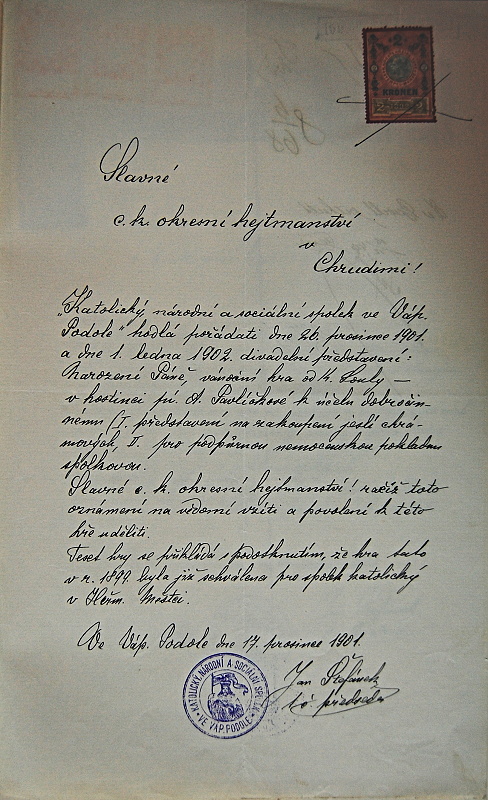 2
KRONEN
Slavné
c. k. okresní hejtmanství
v
Chrudimi!
„Katolický národní a sociální spolek ve Váp.
Podole" hodlá pořádati dne 26. prosince 1901.
a dne 1. ledna 1902. divadelní představení:
Narození Páně, vánoční hra od K. Louly —
v hostinci pí. A. Pavlíčkové k účelu dobročin-
nému (I. představení na zakoupení jeslí chrá-
mových, II. pro podpůrnou nemocenskou pokladnu
spolkovou.
Slavné c. k. okresní hejtmanství! račiž toto
oznámení na vědomí vzíti a povolení k této
hře uděliti.
Text hry se přikládá s podotknutím, že hra tato
v r. 1899. byla již schválena pro spolek katolický
v Heřm. Městci.
Ve Váp. Podole dne 17. prosince 1901.
Jan Štefánek
t. č. předseda
KATOLICKÝ NÁRODNÍ A SOCIÁLNÍ SPOLEK
VE VÁP. PODOLE